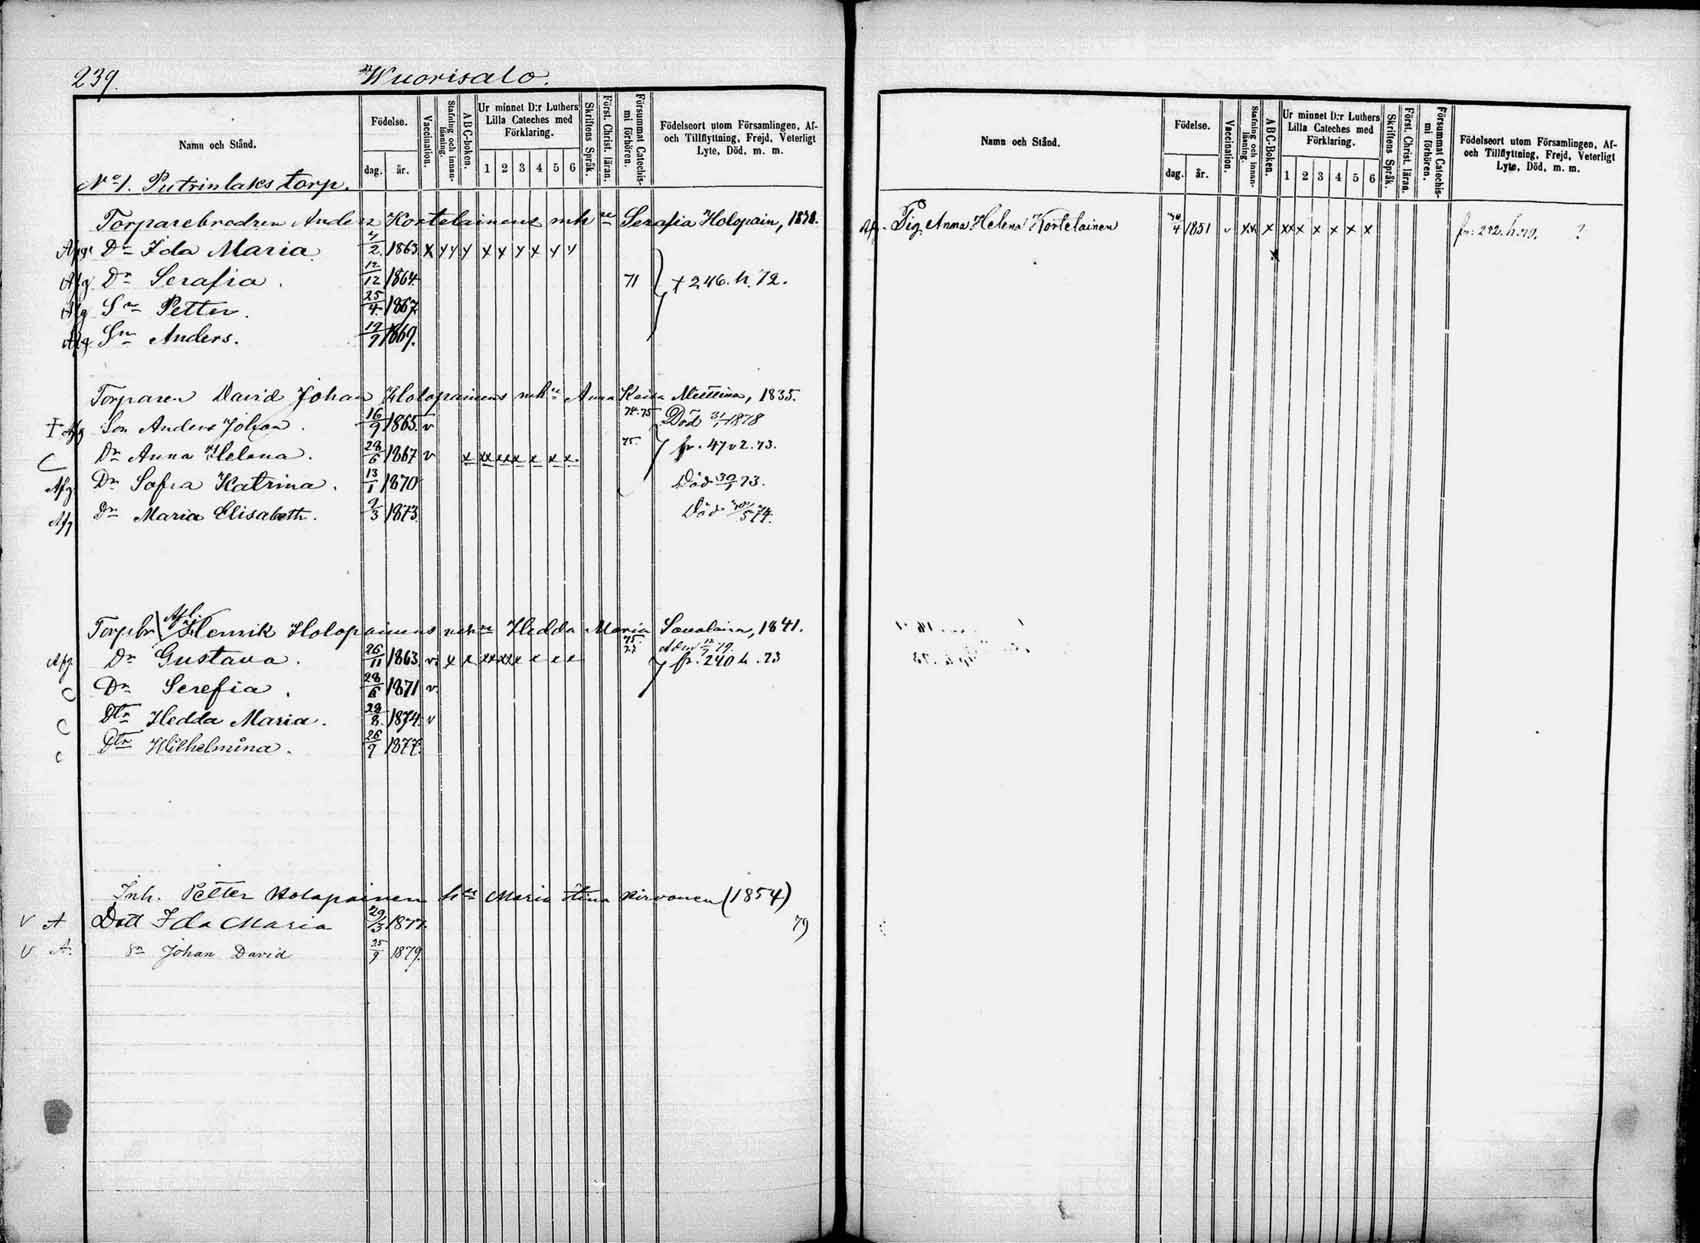 239. Wuorisalo.
Namn och Stånd.
Födelse.
dag. år.
Vaccination.
Stafning och innan-läsning.
ABC-boken.
Ur minnet D:r Luthers Lilla Cateches med Förklaring.
1 2 3 4 5 6
Skriftens Språk.
Först. Christ. läran.
Försummat Catechis-mi förhören.
Födelseort utom Församlingen, Af- och Tillflyttning, Frejd, Veterligt Lyte, Död, m. m.
No 1. Putrinlaks torp.
Torparebrodren Anders Kortelainens mh Serafia Holopain,
Dr Ida Maria 2 1863 x y y y x y y x y y
Afg. Dr Serafia. 12/12 1864 71 + 246. h. 72.
Afg Sn Petter. 25/4 1867
Afg Sn Anders. 19/9 1869.
Torparen David Johan Holopainens mh Anna Kaisa Miettinen, 1835.
Afg Son Anders Johan. 16/9 1865. v Död 1878
C Dr Anna Helena. 28/6 1867 v x xx xx x x x x 75. fr. 47 v 2. 73.
Afg. Dr Sofia Katrina. 13/1 1870 Död 73.
Afg Dr Maria Elisabeth. 9/3 1873 Död 74.
Torpbr Henrik Holopainens mh Hedda Maria Savolain, 1841.
Afg. Dr Gustava. 26/11 1863 v x x xx xx x x x x fr. 240 h. 73
C Dr Serefia. 28/6 1871 v
C Dtr Hedda Maria. 29/8 1874 v
C Dtr Wilhelmina. 26/9 1877.
Inh. Petter Holopainen Maria Stina Hirvonen (1854)
v A Dott Ida Maria 29/3 1877. 79
v A. Sn Johan David 25/9 1879.
Namn och Stånd.
Födelse.
dag. år.
Vaccination.
Stafning och innan-läsning.
ABC-Boken.
Ur minnet D:r Luthers Lilla Cateches med Förklaring.
1 2 3 4 5 6
Skriftens Språk.
Först. Christ. läran.
Försummat Catechis-mi förhören.
Födelseort utom Församlingen, Af- och Tillflyttning, Frejd, Veterligt Lyte, Död, m. m.
Afg. Pig. Anna Helena Kortelainen 1851 v xx x xx x x x x x ?
x